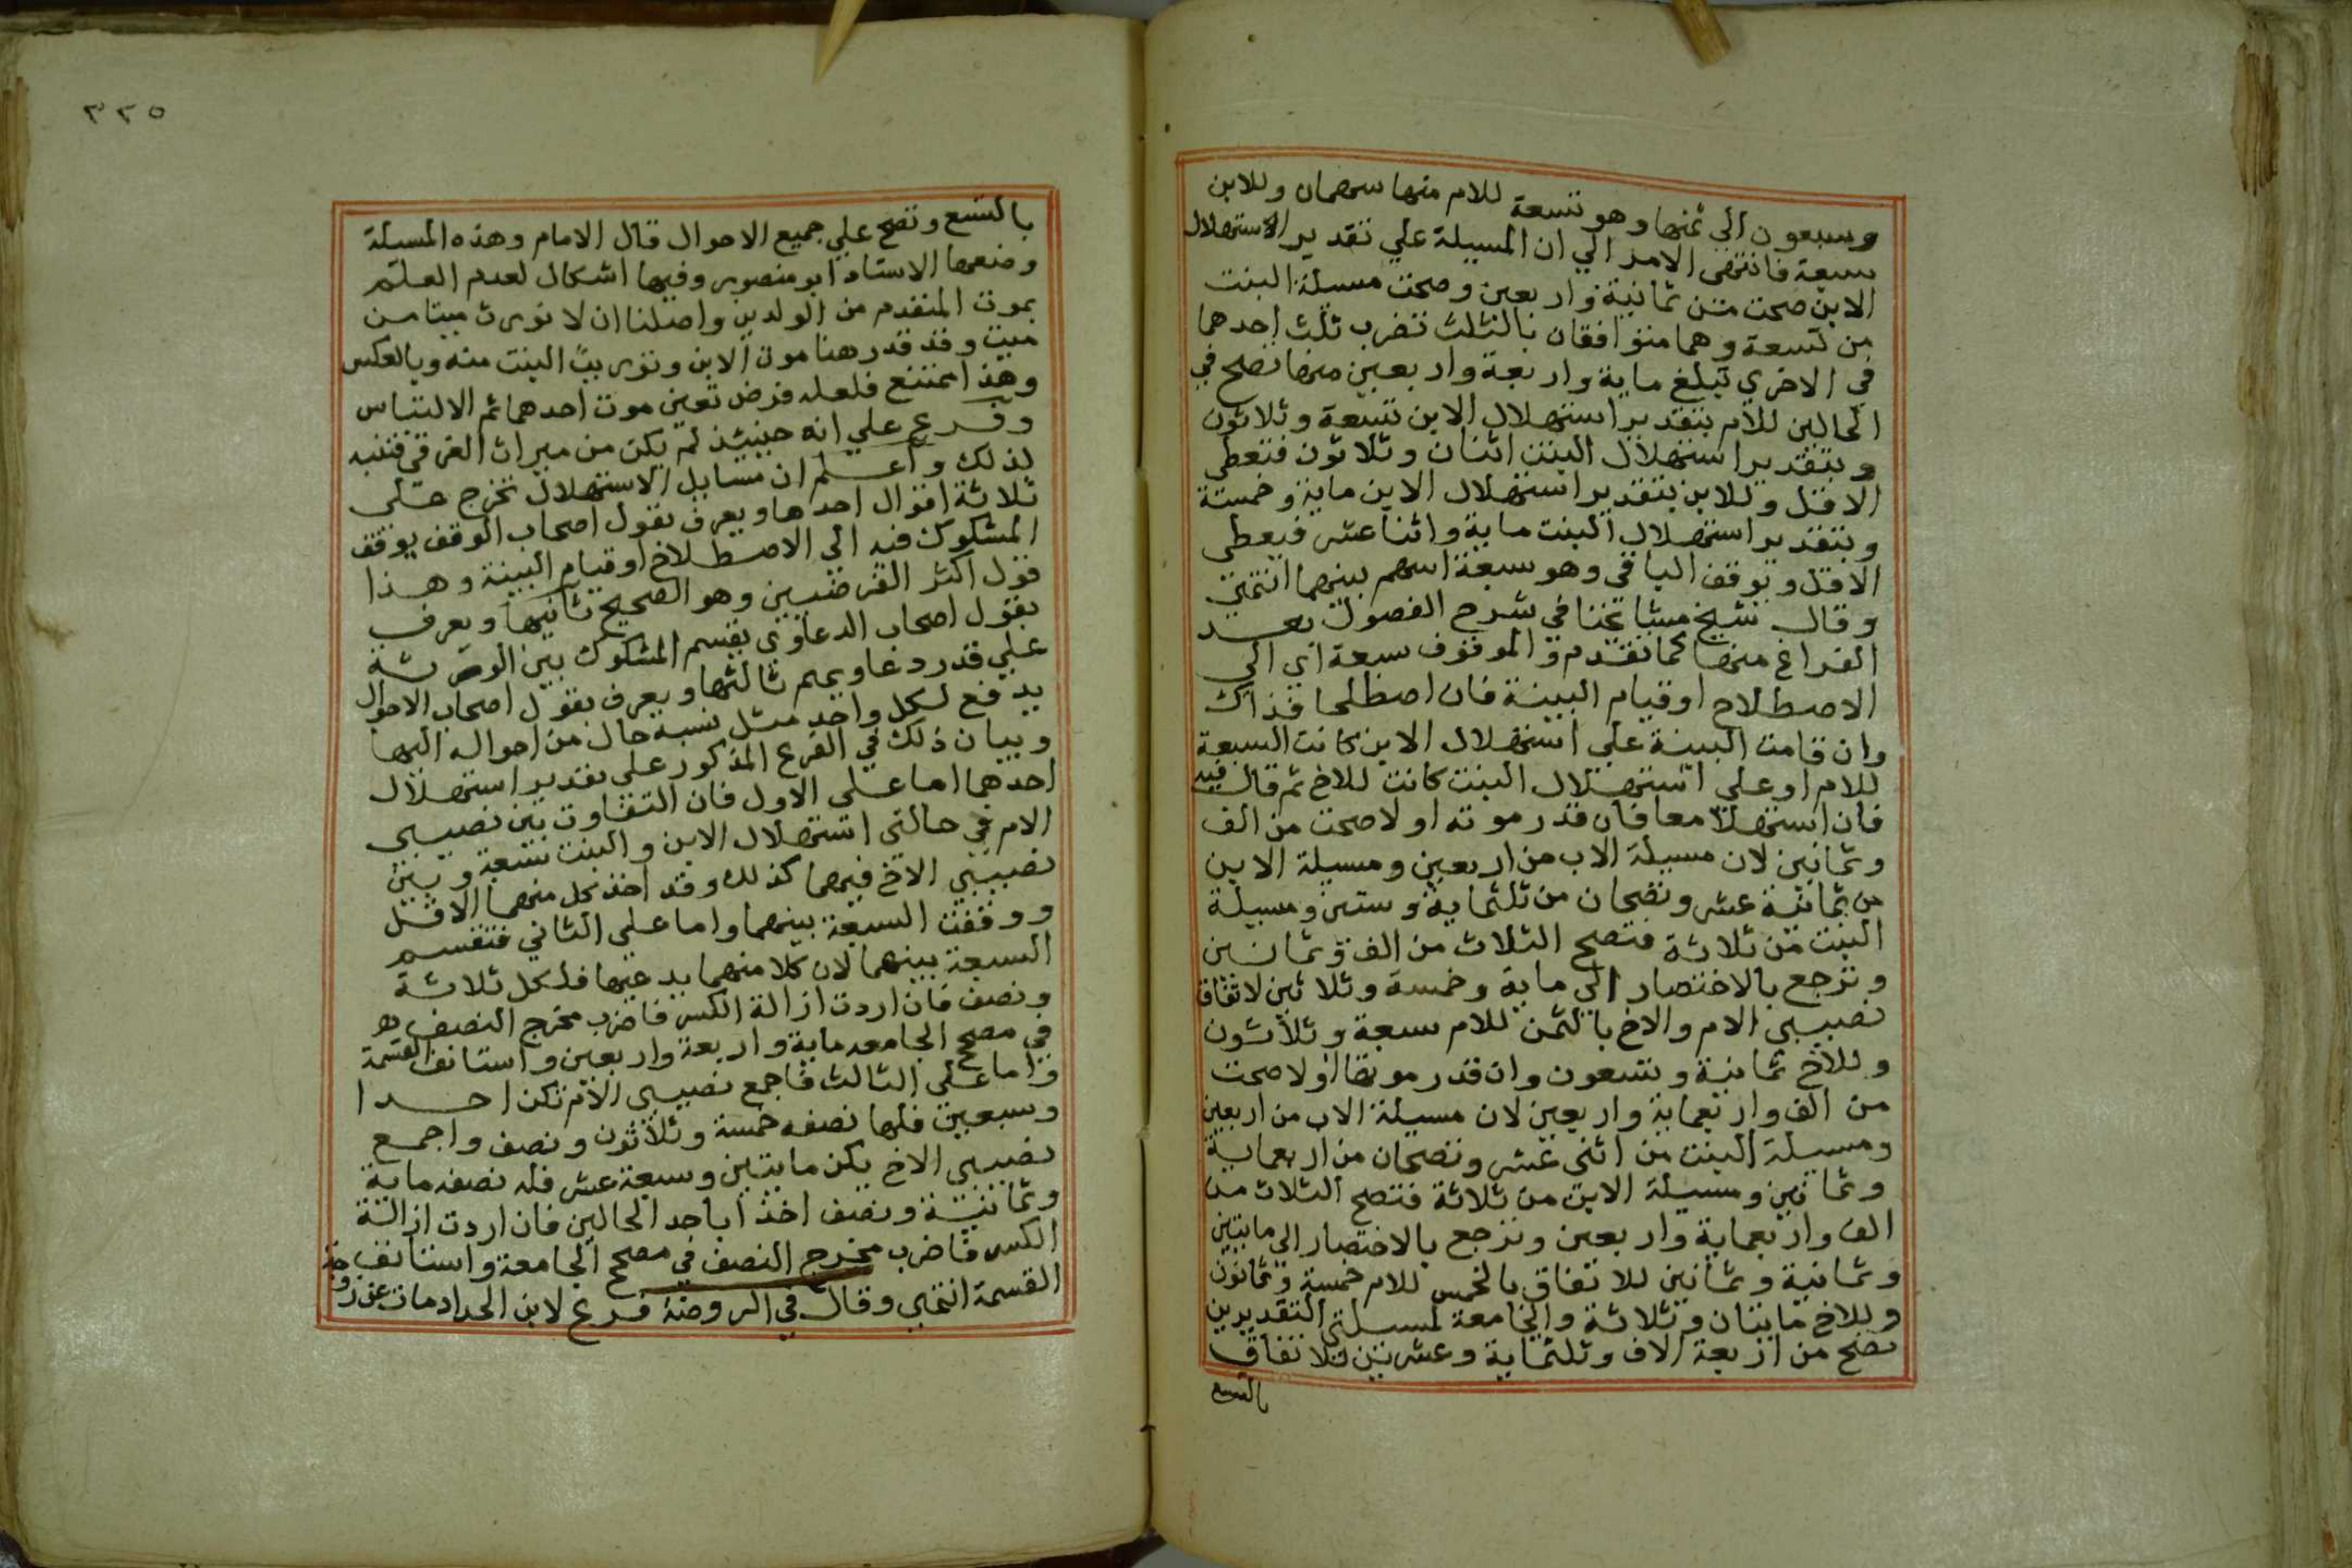 وسبعون الي ثمنها وهو تسعة للام منها سهمان وللابن
سبعة فانتهى الامر الي ان المسيلة علي تقدير الاستهلال
الابن صحت من ثمانية واربعين وصحت مسيلة البنت
من تسعة وهما متوافقان بالثلث تضرب ثلث احدهما
في الاخري تبلغ ماية واربعة واربعين منها تصح في
الحالين للام بتقدير استهلال الابن تسعة وثلاثون
وبتقدير استهلال البنت اثنان وثلاثون فتعطى
الاقل وللابن بتقدير استهلال الابن ماية وخمسة
وبتقدير استهلال البنت ماية واثنا عشر فيعطى
الاقل ويوقف الباقي وهو سبعة اسهم بينهما انتهي
وقال شيخ مشايخنا في شرح الفصول بعد
الفراغ منها كما تقدم والموقوف سبعة اي الي
الاصطلاح او قيام البينة فان اصطلحا فذاك
وان قامت البينة علي استهلال الابن كانت السبعة
للام او على استهلال البنت كانت للاخ ثم قال فيه
فان استهلا معا فان قدر موته اولا صحت من الف
وثمانين لان مسيلة الاب من اربعين ومسيلة الابن
من ثمانية عشر وتصحان من ثلثماية وستين ومسيلة
البنت من ثلاثة فتصح الثلاث من الف وثمانين
وترجع بالاختصار الي ماية وخمسة وثلاثين لاتفاق
نصيبي الام والاخ بالثمن للام سبعة وثلاثون
وللاخ ثمانية وتسعون وان قدر موتها اولا صحت
من الف واربعماية واربعين لان مسيلة الاب من اربعين
ومسيلة البنت من اثنى عشر وتصحان من اربعماية
وثمانين ومسيلة الابن من ثلاثة فتصح الثلاث من
الف واربعماية واربعين وترجع بالاختصار الي مايتين
وثمانية وثمانين للاتفاق بالخمس للام خمسة وثمانون
وللاخ مايتان وثلاثة والجامعة لمسيلتي التقديرين
تصح من اربعة الاف وثلثماية وعشرين للاتفاق
بالتسع
٣٢٥
بالتسع وتصح علي جميع الاحوال قال الامام وهذه المسيلة
وضعها الاستاد ابو منصور وفيها اشكال لعدم العلم
بموت المتقدم من الولدين واصلنا ان لا نورث ميتا من
ميت وقد قدر هنا موت الابن وتوريث البنت منه وبالعكس
وهذا ممتنع فلعله فرض تعين موت احدهما ثم الالتباس
وفرع علي انه حينئذ لم يكن من ميراث الغرقي فتنبه
لذلك واعلم ان مسايل الاستهلال تخرج على
ثلاثة اقوال احدها ويعرف بقول اصحاب الوقف يوقف
المشكوك فيه الي الاصطلاح او قيام البينة وهذا
قول اكثر الفرضيين وهو الصحيح ثانيها ويعرف
بقول اصحاب الدعاوى يقسم المشكوك بين الورثة
علي قدر دعاويهم ثالثها ويعرف بقول اصحاب الاحوال
يدفع لكل واحد مثل نسبة حال من احواله اليها
وبيان ذلك في الفرع المذكور على تقدير استهلال
احدهما اما على الاول فان التفاوت بين نصيبي
الام في حالتي استهلال الابن والبنت سبعة وبين
نصيبي الاخ فيهما كذلك وقد اخذ كل منهما الاقل
ووقفت السبعة بينهما واما علي الثاني فتقسم
السبعة بينهما لان كلا منهما يدعيها فلكل ثلاثة
ونصف فان اردت ازالة الكسر فاضرب مخرج النصف
في مصح الجامعه ماية واربعة واربعين واستانف القسمة
واما على الثالث فاجمع نصيبي الام تكن احدا
وسبعين فلها نصفه خمسة وثلاثون ونصف واجمع
نصيبي الاخ يكن مايتين وسبعة عشر فله نصفه ماية
وثمانية ونصف اخذا باحد الحالين فان اردت ازالة
الكسر فاضرب مخرج النصف في مصح الجامعة واستانف
القسمة انتهي وقال في الروضة فرع لابن الحداد مات عن زوجة